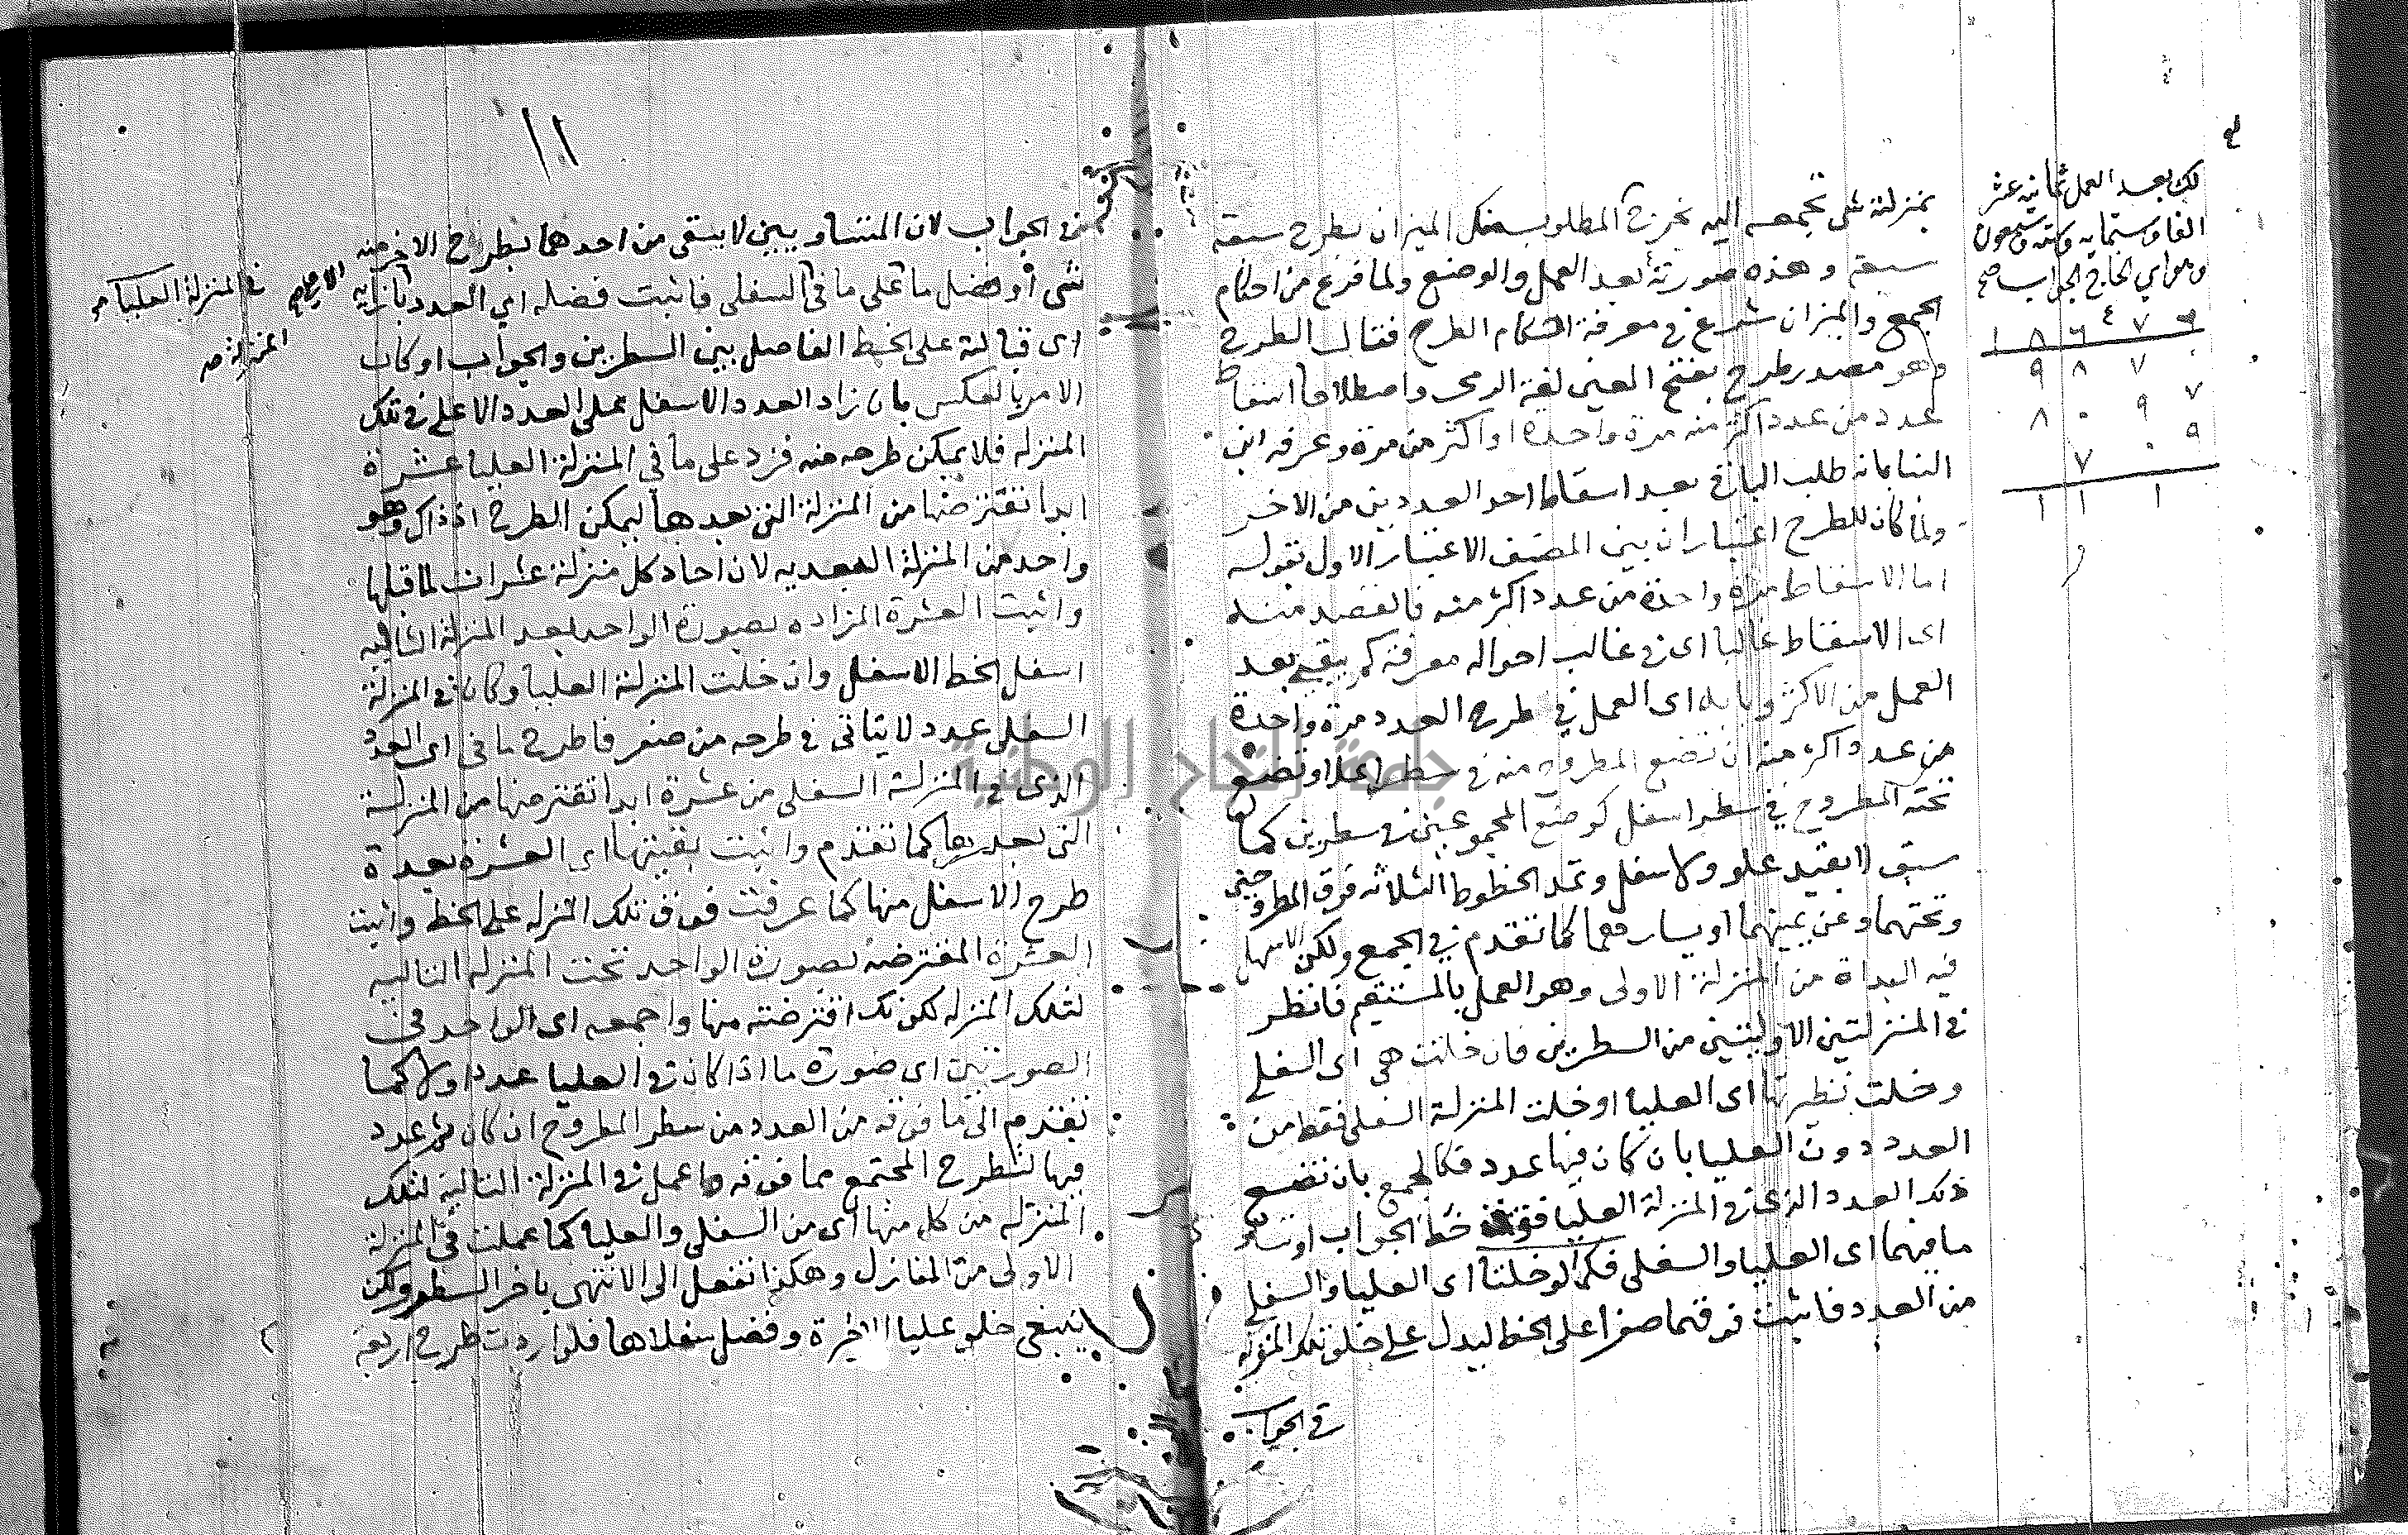 بمنزلة شى تجمعه اليه يخرج المطلوب الميزان بطرح سبعة
سبعة وهذه صورته بعد العمل والوضع ولما فرغ من احكام
الجمع والميزان شرع في معرفة احكام الطرح فقال الطرح
وهو مصدر طرح بفتح العين لغة الرمى واصطلاحا اسقاط
عدد من عدد اكثر منه مرة واحدة او اكثر من مرة وعرفه ابن
البنا بانه طلب الباقى بعد اسقاط احد العددين من الاخر
ولما كان للطرح اعتباران بين المصنف الاعتبار الاول بقوله
اما الاسقاط مرة واحدة من عدد اكثر منه فالقصد منه
اى الاسقاط غالبا اى في غالب احواله معرفة كم يبقى بعد
العمل من الاكثر وبابه اى العمل في طرح العدد مرة واحدة
من عدد اكثر منه ان تضع المطروح منه في سطر اعلا وتضع
تحته المطروح في سطر اسفل كوضع المجموعين في سطرين كما
سبق لا بقيد علو ولا سفل وتمد الخطوط الثلاثه فوق المطروحين
وتحتهما وعن يمينهما او يسارهما كما تقدم في الجمع ولكن الاسهل
فيه البداة من المنزلة الاولى وهو العمل بالمستقيم فانظر
في المنزلتين الاوليتين من السطرين فان خلت هى اى السفلى
وخلت نظيرتها اى العليا او خلت المنزلة السفلى فقط من
العدد دون العليا بان كان فيها عدد فكالجمع بان تضع
ذلك العدد الذى في المنزلة العليا فوق خط الجواب او تساو
ما فيهما اى العليا والسفلى فكما لو خلتا اى العليا والسفلى
من العدد فاثبت فوقهما صفرا على الخط ليدل على خلو تلك المنزله
في الجوا
لك بعد العمل ثمانية عشر
الفا وستمايه وستة وسبعون
وهو اي الخارج الجواب صح
١ ٨ ٦ ٧ ٦
٩ ٨ ٧ ٠
٨ ٠ ٩ ٧
٧ ٠ ٩
١ ١ ١
١١
من الجواب لان المتساويين لا يبقى من احدهما بطرح الاخر منه
شى او فضل ما على ما في السفلى فاثبت فضله اى العدد بازايه
اى قبالته على الخط الفاصل بين السطرين والجواب او كان
الامر بالعكس بان زاد العدد الاسفل على العدد الاعلى في تلك
المنزله فلا يمكن طرحه منه فزد على ما في المنزلة العليا عشرة
ابدا تقترضها من المنزلة التى بعدها ليمكن الطرح اذ ذاك وهو
واحد من المنزلة البعديه لان احاد كل منزلة عشرات لما قبلها
واثبت العشرة المزاده بصورة الواحد بعد المنزلة التاليه
اسفل الخط الاسفل وان خلت المنزلة العليا وكان في المنزلة
السفلى عدد لا يتاتى في طرحه من صفر فاطرح ما في اى العدد
الذى في المنزلة السفلى من عشرة ابدا تقترضها من المنزلة
التى بعدها كما تقدم واثبت بقيتها اى العشرة بعد
طرح الاسفل منها كما عرفت فوق تلك المنزله على الخط واثبت
العشرة المقترضه بصورة الواحد تحت المنزله التاليه
لتلك المنزله لكونك اقترضته منها واجمعه اى الواحد في
الصورتين اى صورة ما اذا كان في العليا عدد اولا كما
تقدم الى ما فوقه من العدد من سطر المطروح ان كان ثم عدد
فيها لتطرح المجتمع مما فوقه واعمل في المنزلة التالية لتلك
المنزله من كل منها اى من السفلى والعليا كما عملت في المنزلة
الاولى من المنازل وهكذا تفعل الى الانتهى باخر السطر ولكن
ينبغى خلو عليا الاخيرة وفضل سفلاها فلو اردت طرح اربعة
في المنزلة العليا
المنزلة صح
جامعة النجاح الوطنية